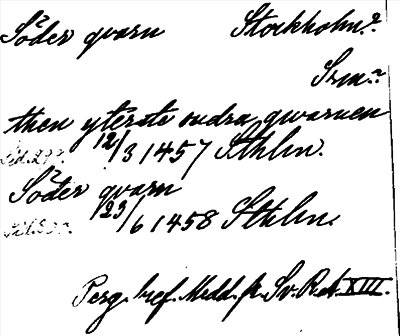 Söder qvarn Stockholm?
Srm?
then yterste sudra qwarnen
12/3 1457 Sthlm.
Söder qvarn
23/6 1458 Sthlm.
Perg. bref. Medd. fr. Sv. R. A. XIII.